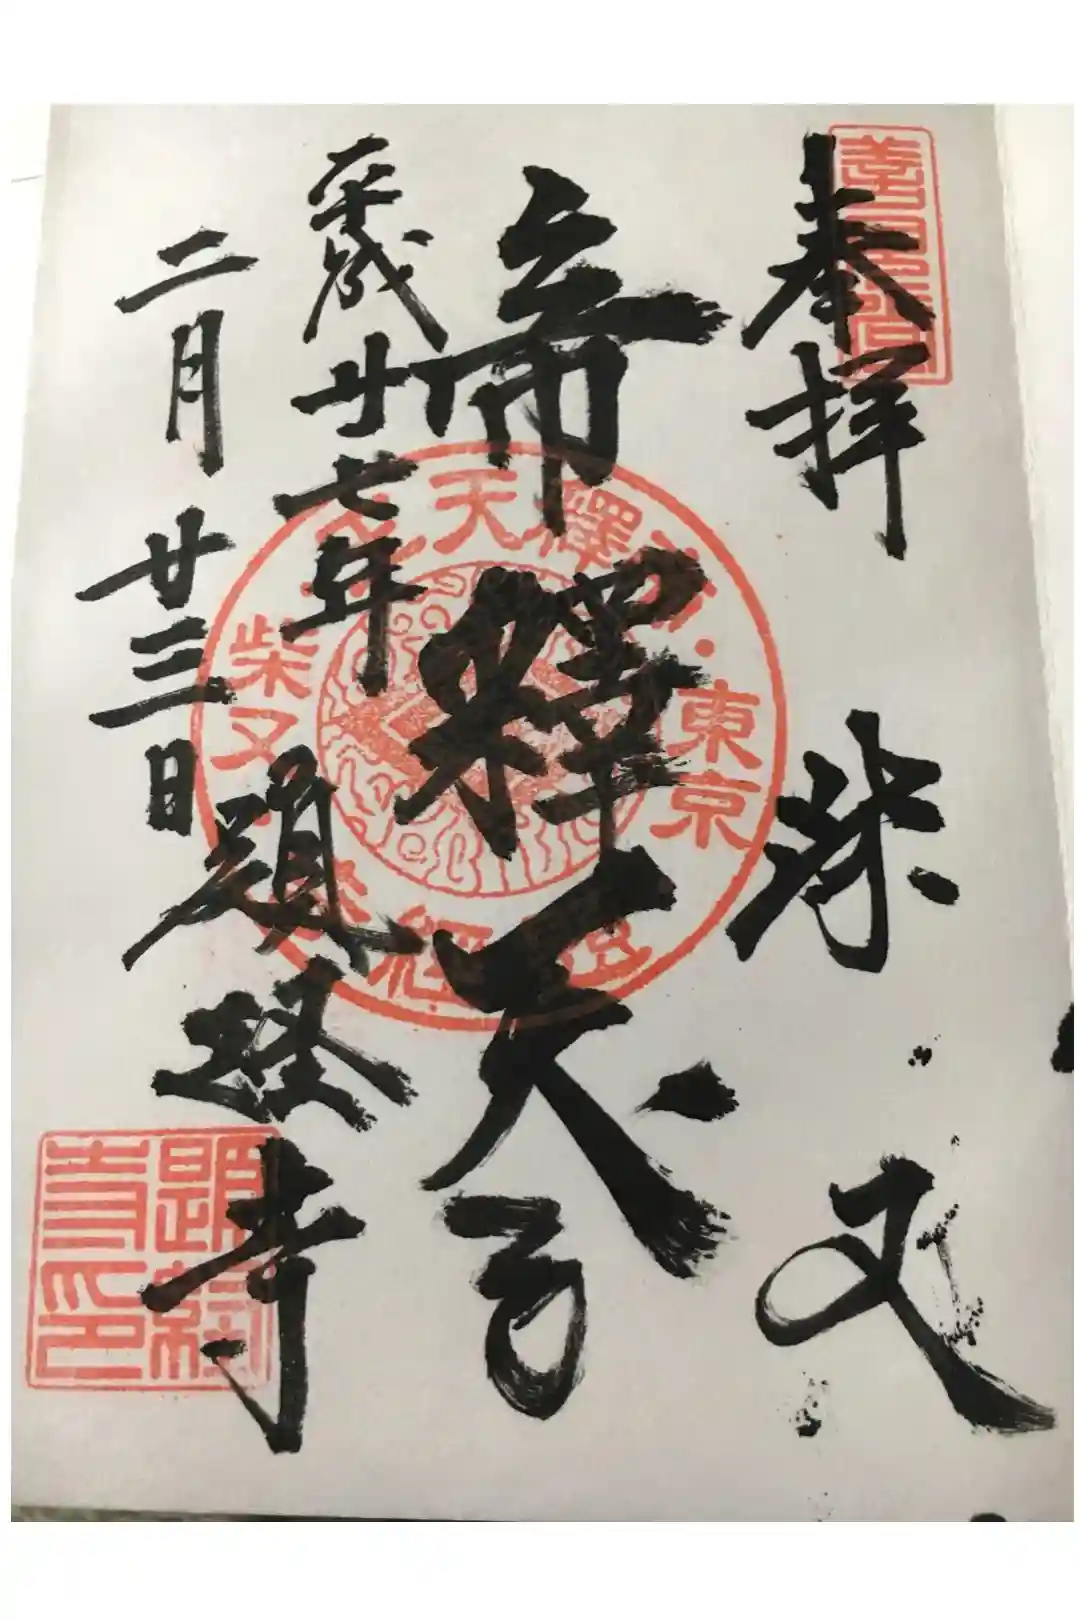 奉拝 柴又
帝釋天
平成廿七年
二月廿三日
題経寺
東京
柴又
帝釋天
題經寺
題經寺印